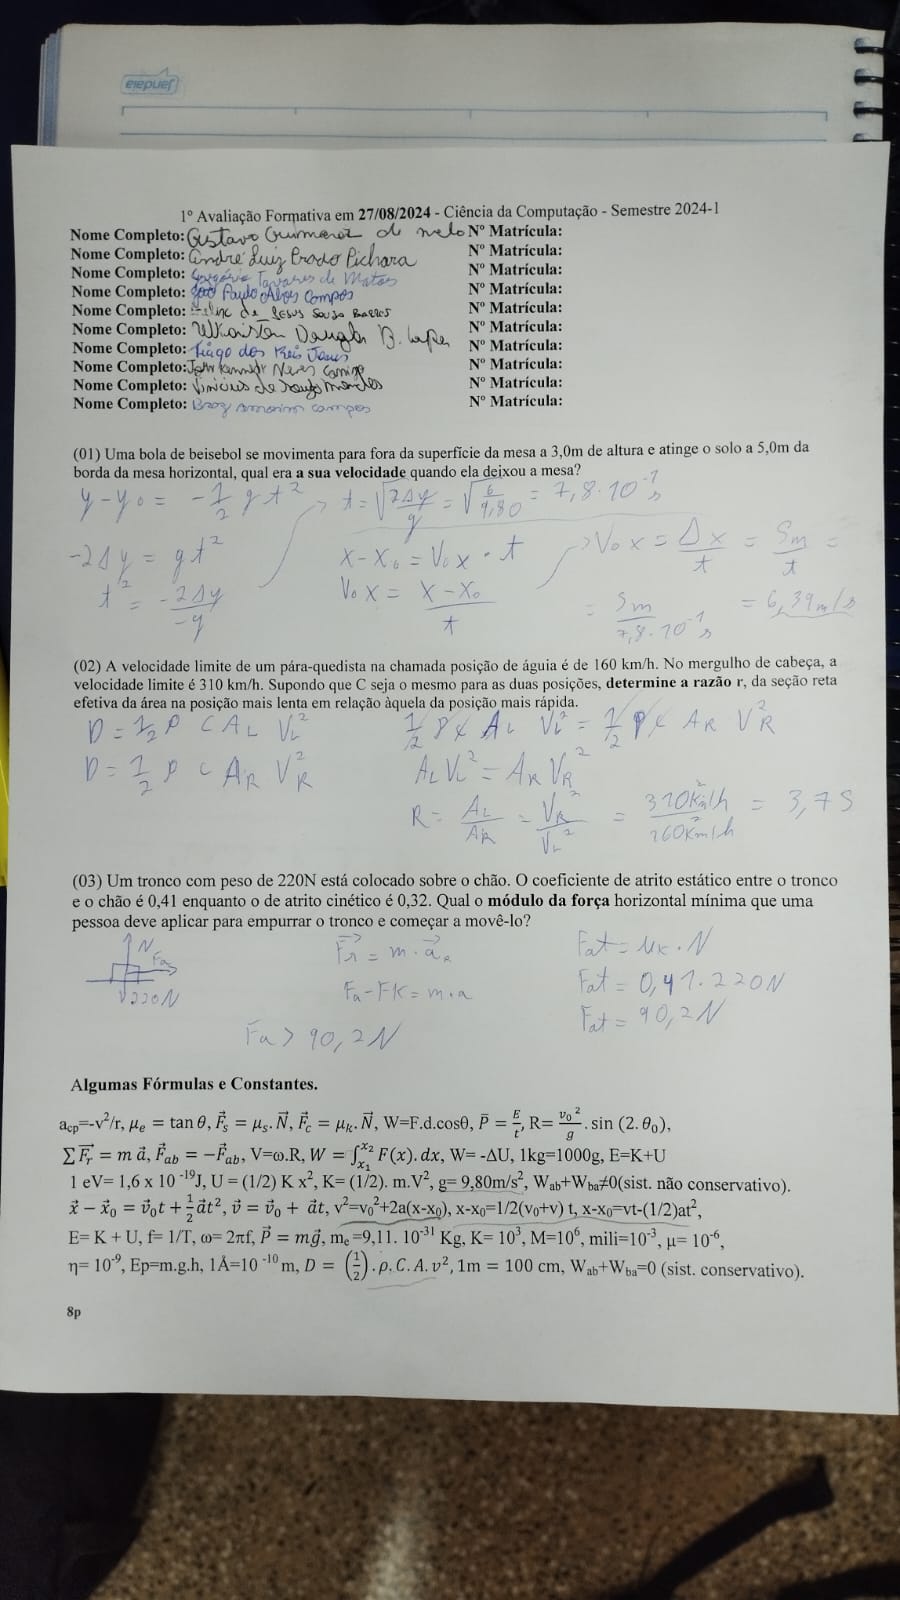 Jandaia
1º Avaliação Formativa em 27/08/2024 - Ciência da Computação - Semestre 2024-1
Nome Completo: Gustavo Guimarães de Melo Nº Matrícula:
Nome Completo: André Luiz Prado Pichara Nº Matrícula:
Nome Completo: Gregório Tavares de Matos Nº Matrícula:
Nome Completo: João Paulo Alves Campos Nº Matrícula:
Nome Completo: Felix de Jesus Souza Barros Nº Matrícula:
Nome Completo: Douglas B. Nº Matrícula:
Nome Completo: Tiago dos Reis Nº Matrícula:
Nome Completo: John Kennedy Neves Nº Matrícula:
Nome Completo: Vinicius de Souza Mendes Nº Matrícula:
Nome Completo: Amorim Campos Nº Matrícula:
(01) Uma bola de beisebol se movimenta para fora da superfície da mesa a 3,0m de altura e atinge o solo a 5,0m da
borda da mesa horizontal, qual era a sua velocidade quando ela deixou a mesa?
y-y₀ = -1/2 g t² → t = √(2Δy/g) = √(6/9,80) = 7,8·10⁻¹ s
-2Δy = gt² x-x₀ = V₀x · t → V₀x = Δx/t = 5m/t =
t² = -2Δy/-g V₀x = x-x₀/t = 5m/7,8·10⁻¹ s = 6,39m/s
(02) A velocidade limite de um pára-quedista na chamada posição de águia é de 160 km/h. No mergulho de cabeça, a
velocidade limite é 310 km/h. Supondo que C seja o mesmo para as duas posições, determine a razão r, da seção reta
efetiva da área na posição mais lenta em relação àquela da posição mais rápida.
D = 1/2 ρ C A_L V_L² 1/2 ρ C A_L V_L² = 1/2 ρ C A_R V_R²
D = 1/2 ρ C A_R V_R² A_L V_L² = A_R V_R²
R = A_L/A_R = V_R²/V_L² = 310Km²/h/160Km²/h = 3,75
(03) Um tronco com peso de 220N está colocado sobre o chão. O coeficiente de atrito estático entre o tronco
e o chão é 0,41 enquanto o de atrito cinético é 0,32. Qual o módulo da força horizontal mínima que uma
pessoa deve aplicar para empurrar o tronco e começar a movê-lo?
N Fr = m · a_R Fat = μκ · N
Fa
220N Fa - Fk = m · a Fat = 0,41 · 220N
Fat = 90,2N
Fa > 90,2N
Algumas Fórmulas e Constantes.
a_cp=-v²/r, μₑ = tan θ, F⃗ₛ = μₛ. N⃗, F⃗_c = μₖ. N⃗, W=F.d.cosθ, P̄ = E/t, R= v₀²/g . sin (2. θ₀),
∑F⃗ᵣ = m a⃗, F⃗_ab = −F⃗_ab, V=ω.R, W = ∫ₓ₁ˣ² F(x). dx, W= -ΔU, 1kg=1000g, E=K+U
1 eV= 1,6 x 10 ⁻¹⁹J, U = (1/2) K x², K= (1/2). m.V², g= 9,80m/s², W_ab+W_ba≠0(sist. não conservativo).
x⃗ − x⃗₀ = v⃗₀t + 1/2 a⃗t², v⃗ = v⃗₀ + a⃗t, v²=v₀²+2a(x-x₀), x-x₀=1/2(v₀+v) t, x-x₀=vt-(1/2)at²,
E= K + U, f= 1/T, ω= 2πf, P⃗ = mg⃗, mₑ =9,11. 10⁻³¹ Kg, K= 10³, M=10⁶, mili=10⁻³, μ= 10⁻⁶,
η= 10⁻⁹, Ep=m.g.h, 1Å=10 ⁻¹⁰ m, D = (1/2) .ρ, C. A. v², 1m = 100 cm, W_ab+W_ba=0 (sist. conservativo).
8p